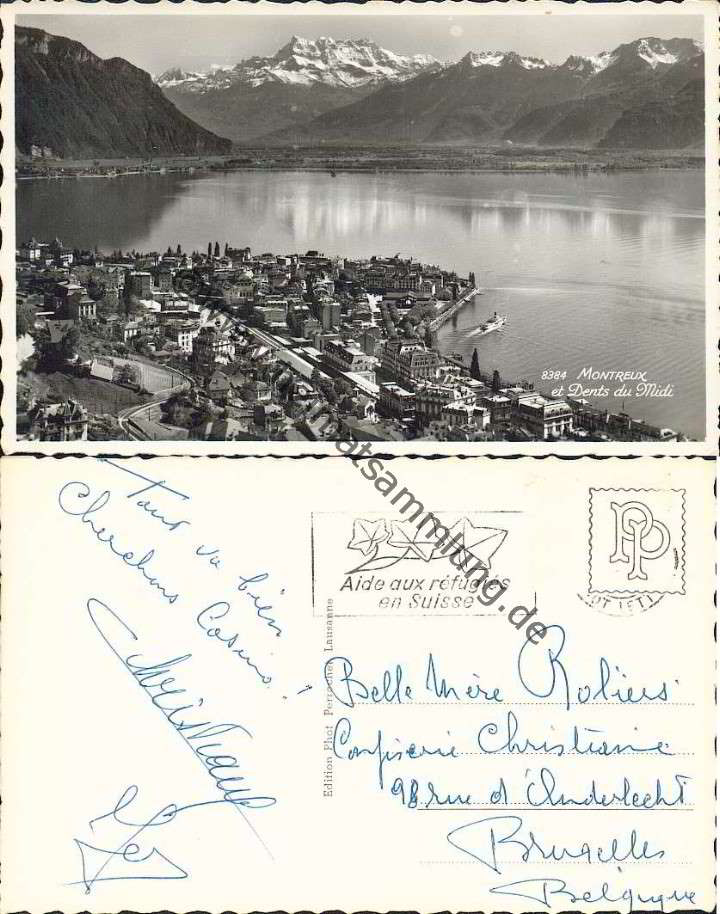 8384 MONTREUX
et Dents du Midi
Tout va bien
Cherchons Casino !
Christiane
Aide aux réfugiés
en Suisse
PP
Edition Phot Perrochet Lausanne
Belle Mère Roliers
Confiserie Christiane
98 rue d'Anderlecht
Bruxelles
Belgique